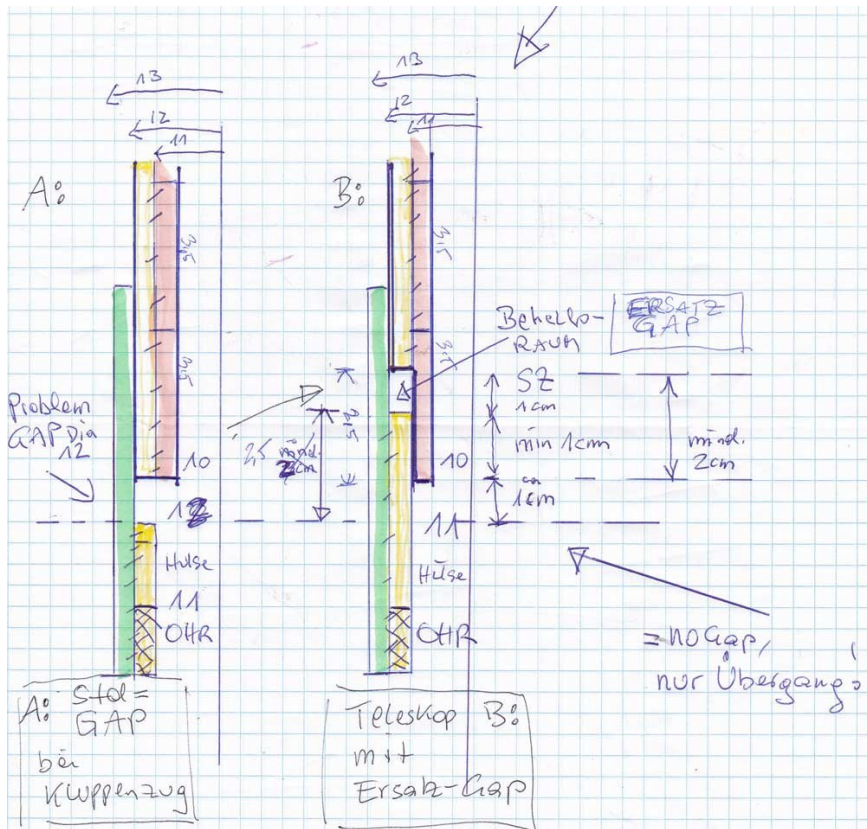 13
12
11
A:
3,5
3,5
Problem
GAP Dia
12
10
12
Hülse
11
OHR
A: Std =
GAP
bei
Kluppenzug
13
12
11
B:
3,5
3,5
Behelbs-
RAUM
ERSATZ
GAP
K
2,5
K
2,5 mind.
2cm
SZ
1cm
min 1cm
mind.
2cm
10
ca
1cm
11
Hülse
OHR
= no Gap,
nur Übergang!
Teleskop B:
mit
Ersatz-Gap